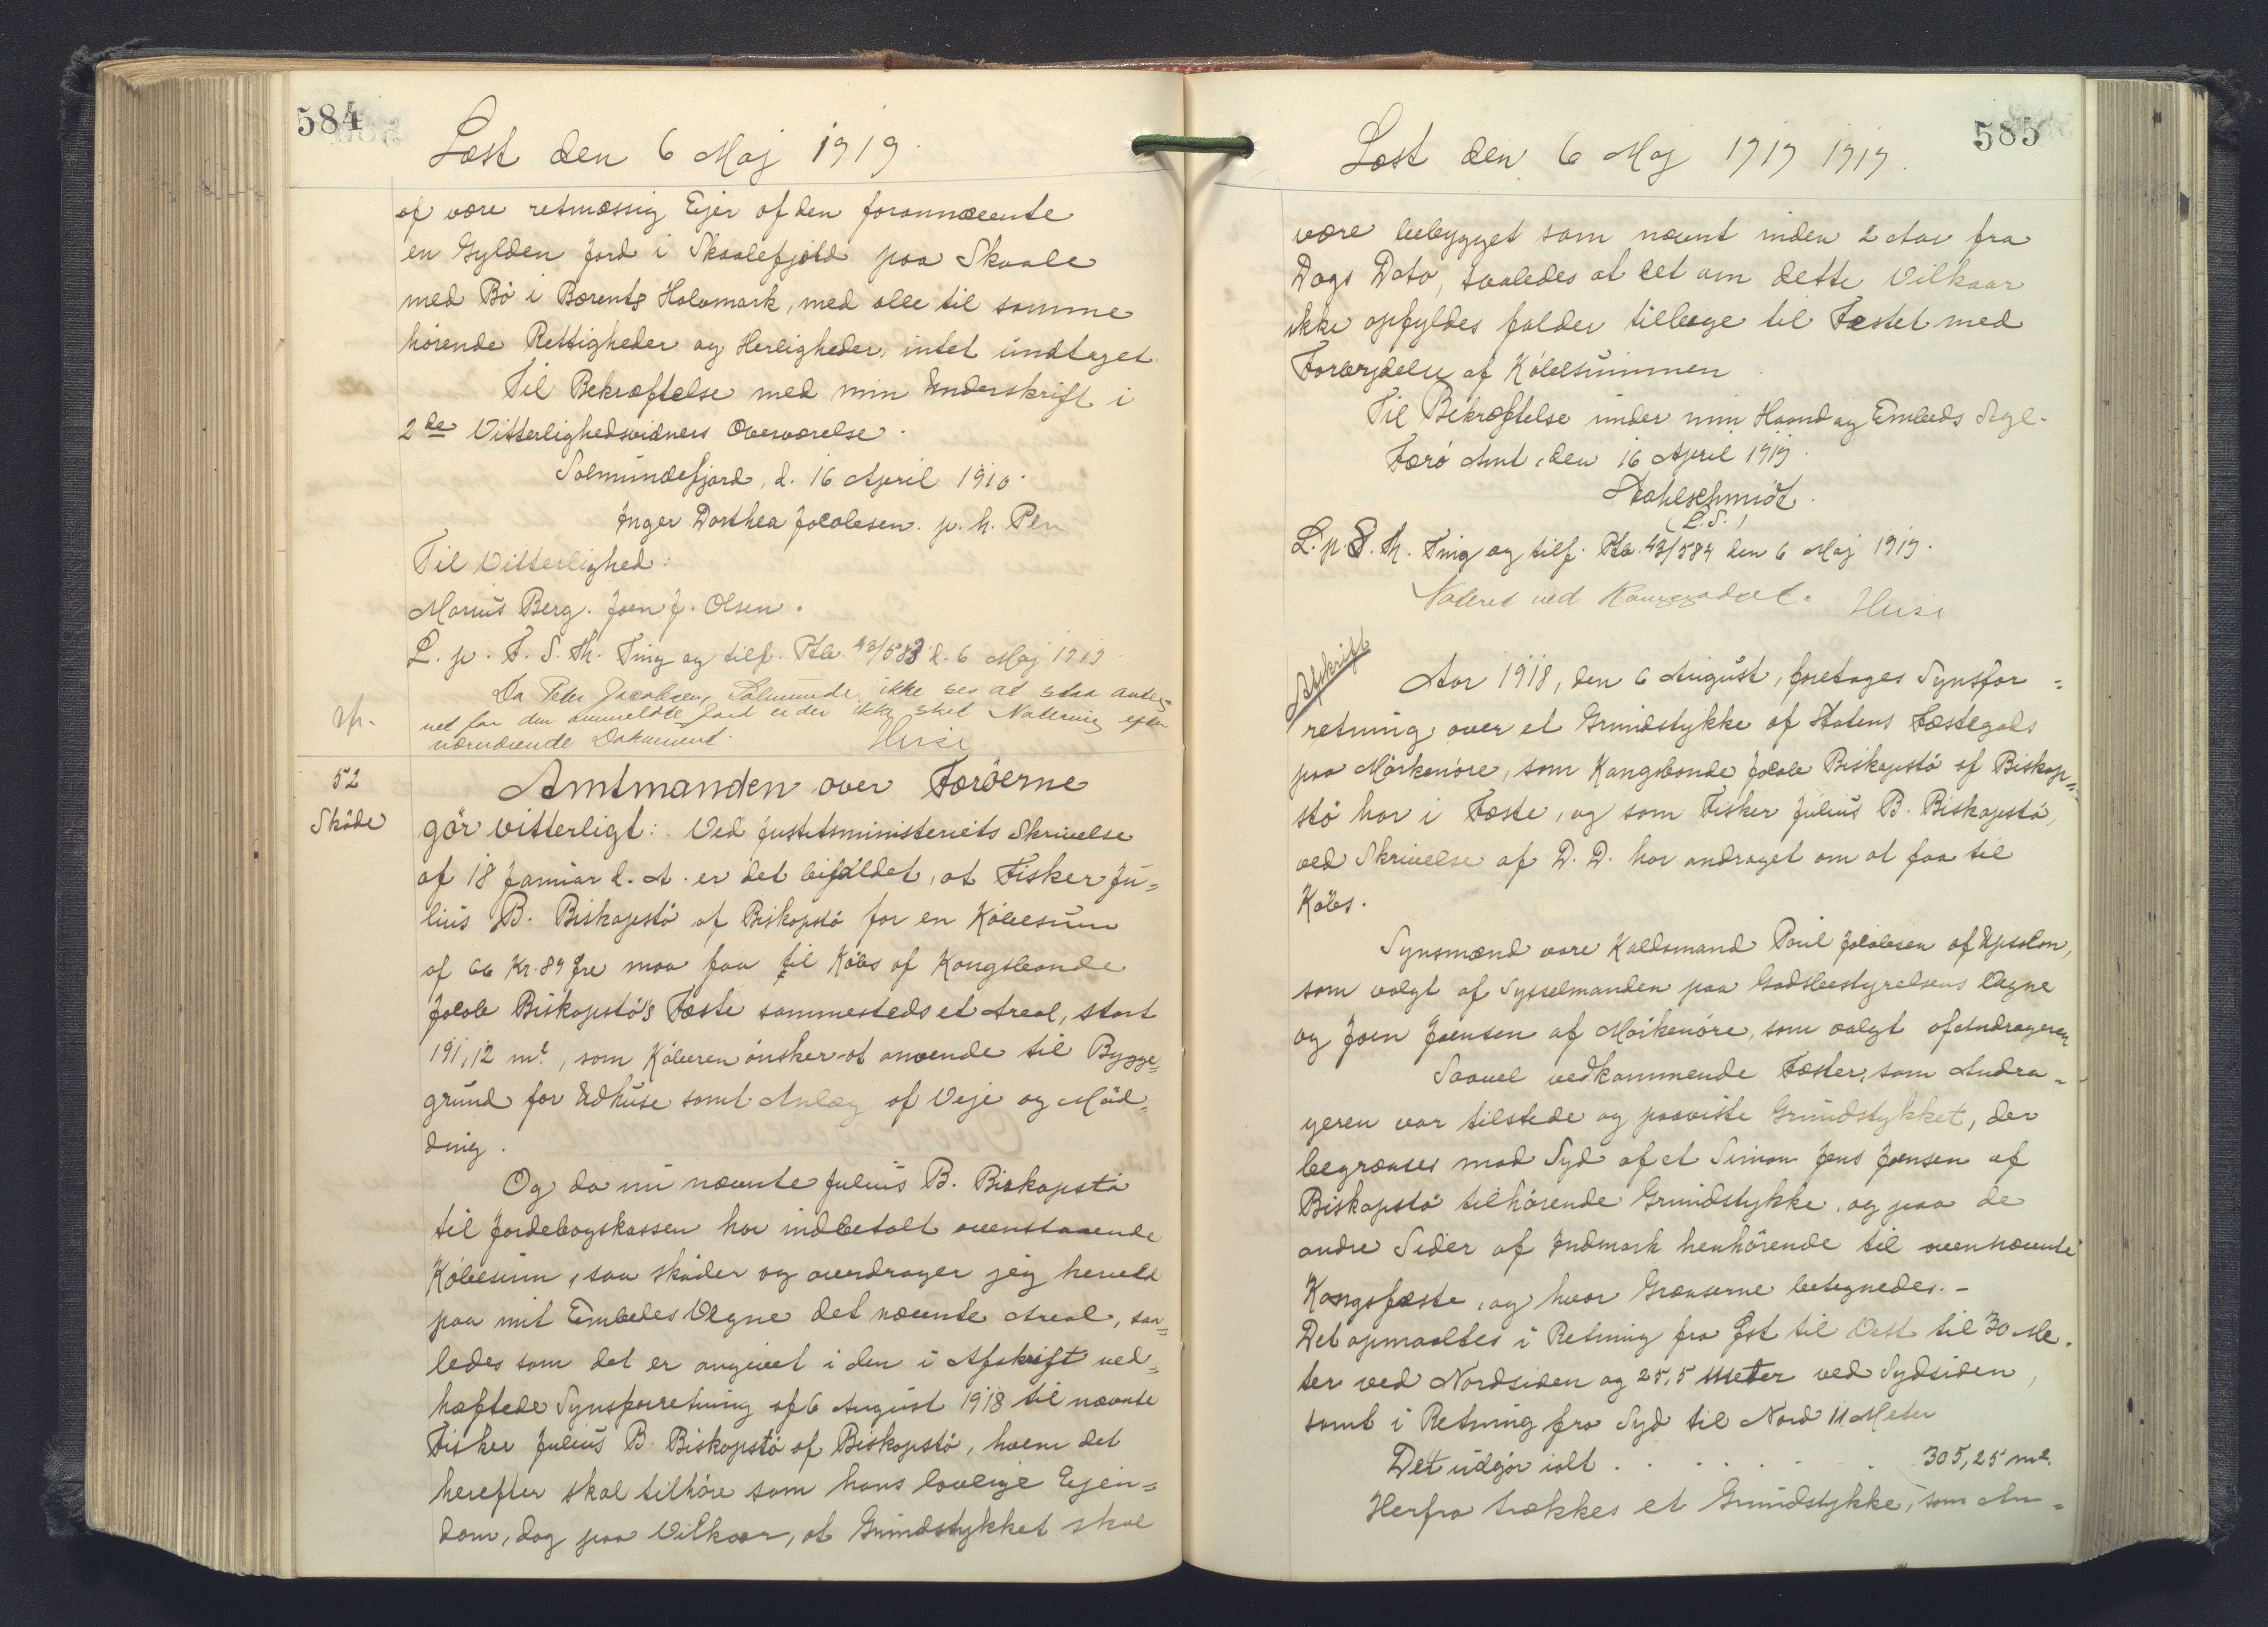 584
Læst den 6 Maj 1919.
af være retmæssig Ejer af den forannævnte
en Gylden Jord i Skaalefjold paa Skaale
med Bö i Bærents Halvmark, med alle til samme
hörende Rettigheder og Herligheder, intet undtaget.
Til Bekræftelse med min Underskrift i
2de Vitterlighedsvidners Overværelse.
Solmundefjord, d. 16 April 1910.
Inger Dorthea Jacobsen. p. h. Pen
Til Vitterlighed:
Marius Berg. Joen J. Olsen.
L. p. F. S. Th. Ting og tilf. Ptb. 43/583 d. 6 Maj 1919.
Da Peter Jacobsen, Solmunde, ikke ses at staa anteg=
net for den ommeldte Jord er der ikke sket Notering efter
nærværende Dokument.
52
Sköde
Amtmanden over Færöerne
gör vitterligt: Ved Justitsministeriets Skrivelse
af 18 Januar d. A. er det bifaldet, at Fisker Ju=
lius B. Biskopstö af Biskopstö for en Köbesum
af 66 Kr. 89 Øre maa faa til Köbs af Kongsbonde
Jacob Biskopstö's Fæste sammesteds et Areal, stort
191,12 m2., som Köberen önsker at anvende til Bygge=
grund for Udhuse samt Anlæg af Veje og Möd=
ding.
Og da nu nævnte Julius B. Biskopstö
til Jordebogskassen har indbetalt ovenstaaende
Köbesum, saa sköder og overdrager jeg herved
paa mit Embedes Vegne det nævnte Areal, saa=
ledes som det er angivet i den i Afskrift ved=
hæftede Synsforretning af 6 August 1918 til nævnte
Fisker Julius B. Biskopstö af Biskopstö, hvem det
herefter skal tilhöre som hans lovlige Ejen=
dom, dog paa Vilkaar, at Grundstykket skal
585
Læst den 6 Maj 1919 1919.
være bebygget som nævnt inden 2 Aar fra
Dags Dato, saaledes at det om dette Vilkaar
ikke opfyldes falder tilbage til Fæstet med
Forbrydelse af Köbesummen
Til Bekræftelse under min Haand og Embeds Segl.
Færö Amt, den 16 April 1919.
Dahlschmidt.
(L.S.)
L. p. S. Th. Ting og tilf. Ptb. 43/584 den 6 Maj 1919.
Noteret ved Kongsgodset.
Afskrift
Aar 1918, den 6 August, foretages Synsfor=
retning over et Grundstykke af Statens Fæstegods
paa Mörkenöre, som Kongsbonde Jacob Biskopstö af Biskop=
stö har i Fæste, og som Fisker Julius B. Biskopstö,
ved Skrivelse af D. D. har andraget om at faa til
Köbs.
Synsmænd vare Kaldsmand Poul Jacobsen af Upsalon,
som valgt af Sysselmanden paa Godsbestyrelsens Vegne
og Joen Joensen af Mörkenöre, som valgt af Andrageren
Saavel vedkommende Fæster, som Andra=
geren var tilstede og paaviste Grundstykket, der
begrænses mod Syd af et Simon Jens Joensen af
Biskopstö tilhörende Grundstykke, og paa de
andre Sider af Indmark henhörende til ovennævnte
Kongsfæste, og hvor Grænserne betegnedes. -
Det opmaaltes i Retning fra Øst til Vest til 30 Me=
ter ved Nordsiden og 25,5 Meter ved Sydsiden,
samt i Retning fra Syd til Nord 11 Meter
Det udgör ialt . . . . . . 305,25 m2.
Herfra trækkes et Grundstykke, som An=